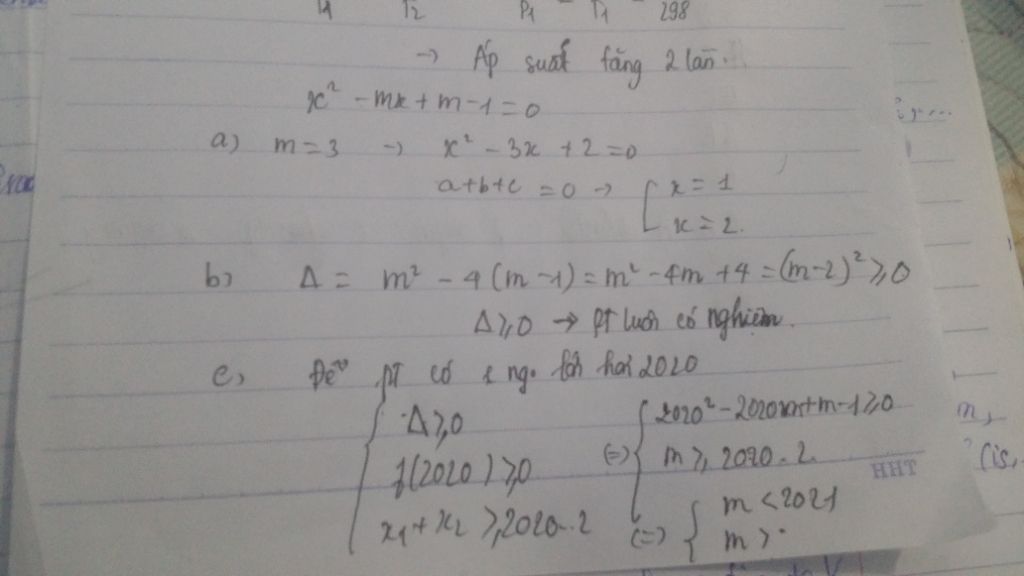 P1 T2 P1 = T1 298
→ Áp suất tăng 2 lần.
x² - mx + m - 1 = 0
a) m = 3 → x² - 3x + 2 = 0
a+b+c = 0 → [ x = 1
x = 2.
b) Δ = m² - 4(m-1) = m² - 4m + 4 = (m-2)² ≥ 0
Δ ≥ 0 → PT luôn có nghiệm.
c, Để PT có 1 ngo lớn hơn 2020
{ Δ ≥ 0
f(2020) ≥ 0
x₁ + x₂ ≥ 2020 . 2
(=) { 2020² - 2020m + m - 1 ≥ 0
m ≥ 2020 . 2
(=) { m < 2021
m >
HHT